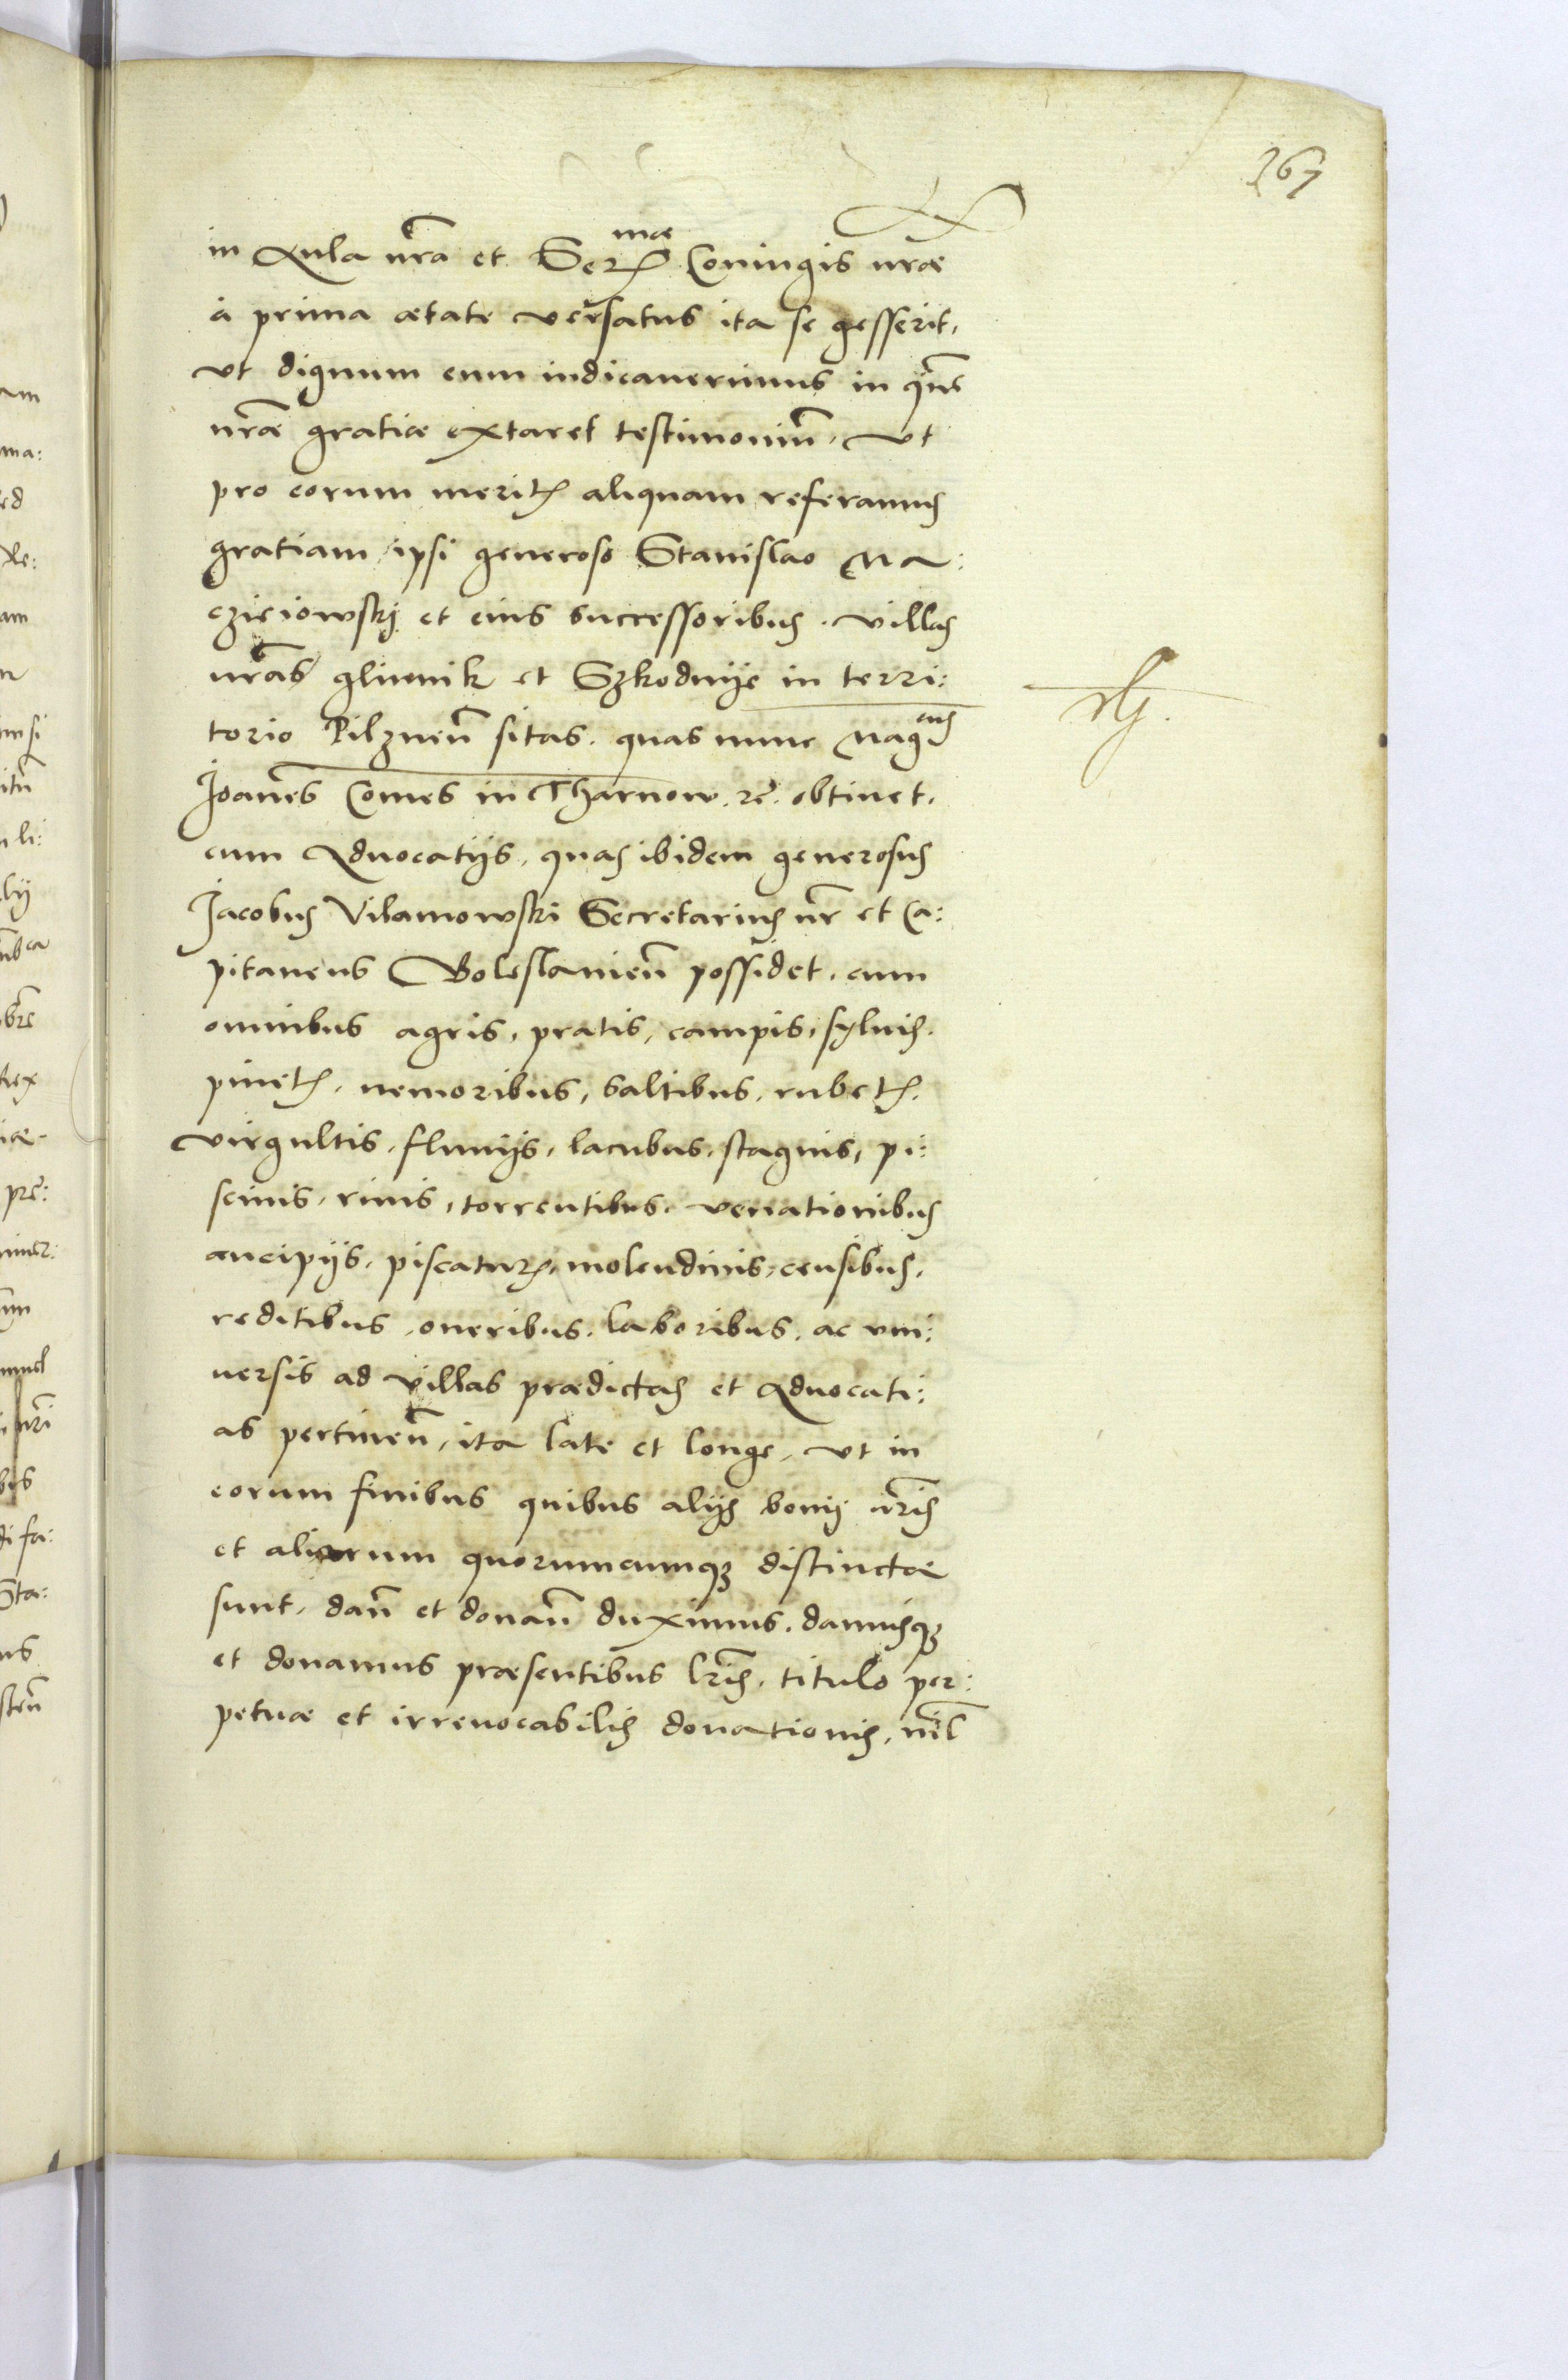 267
in Aula nrã et Sermae Coniugis nrãe
à prima aetate versatus ita se gesserit,
vt dignum eum iudicauerimus in quẽ
nrãe gratiae extaret testimoniũ. Vt
pro eorum meritis aliquam referamus
gratiam, ipsi generoso Stanislao Ma:
czieiowskj et eius successoribus. villas
nrãs glinnik et Szkodnije in terri:
torio Pilzneñ sitas. quas nunc Magcus
Joanẽs Comes in Tharnow. rẽ. obtinet.
cum Aduocatijs, quas ibidem generosus
Jacobus Vilamowski Secretarius nr̃ et Ca:
pitaneus Boleslauieñ possidet. cum
omnibus agris, pratis, campis, syluis.
pinetis. nemoribus, saltibus, rubetis.
virgultis, fluuijs, lacubus, stagnis, pi:
scinis, riuis, torrentibus. venationibus
aucipijs, piscaturis, molendinis, censibus,
reditibus, oneribus. laboribus, ac vni:
uersis ad villas praedictas et Aduocati:
as pertineñ, ita late et longe, vt in
eorum finibus quibus alijs bonis nrĩs
et aliorum quorumcumque distinctae
sunt, dañ et donañ duximus. damusque
et donamus praesentibus lrĩs, titulo per:
petuae et irreuocabilis donationis, nil̃